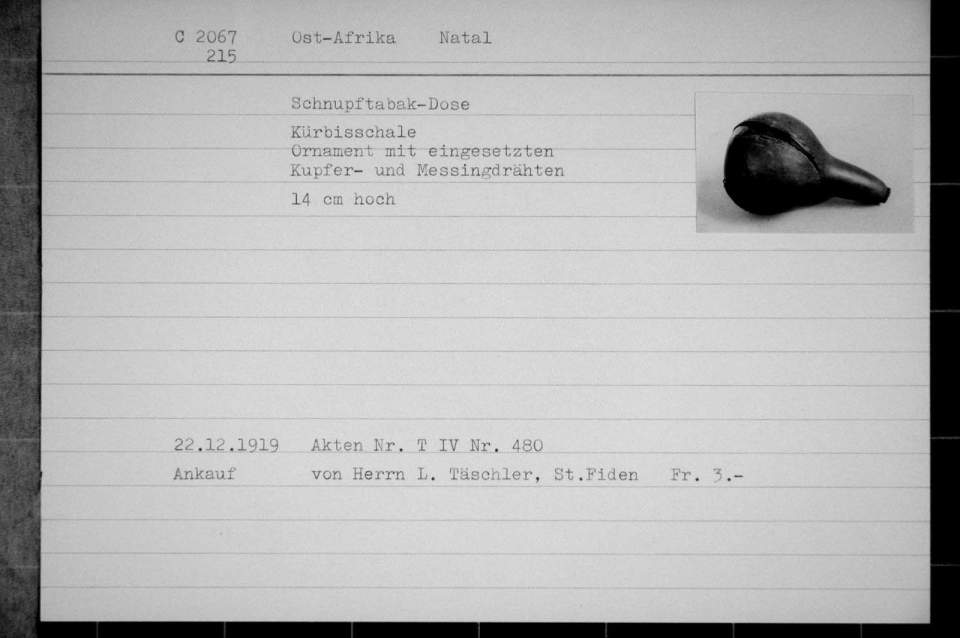 C 2067 Ost-Afrika Natal
215
Schnupftabak-Dose
Kürbisschale
Ornament mit eingesetzten
Kupfer- und Messingdrähten
14 cm hoch
22.12.1919 Akten Nr. T IV Nr. 480
Ankauf von Herrn L. Täschler, St.Fiden Fr. 3.-